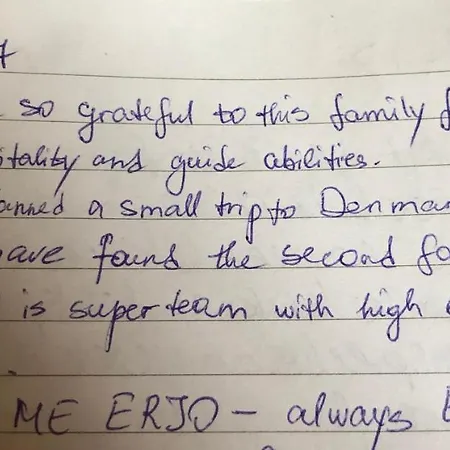 so grateful to this family
and guide abilities.
a small trip to
found the second
is super team with high
ME ERJO - always